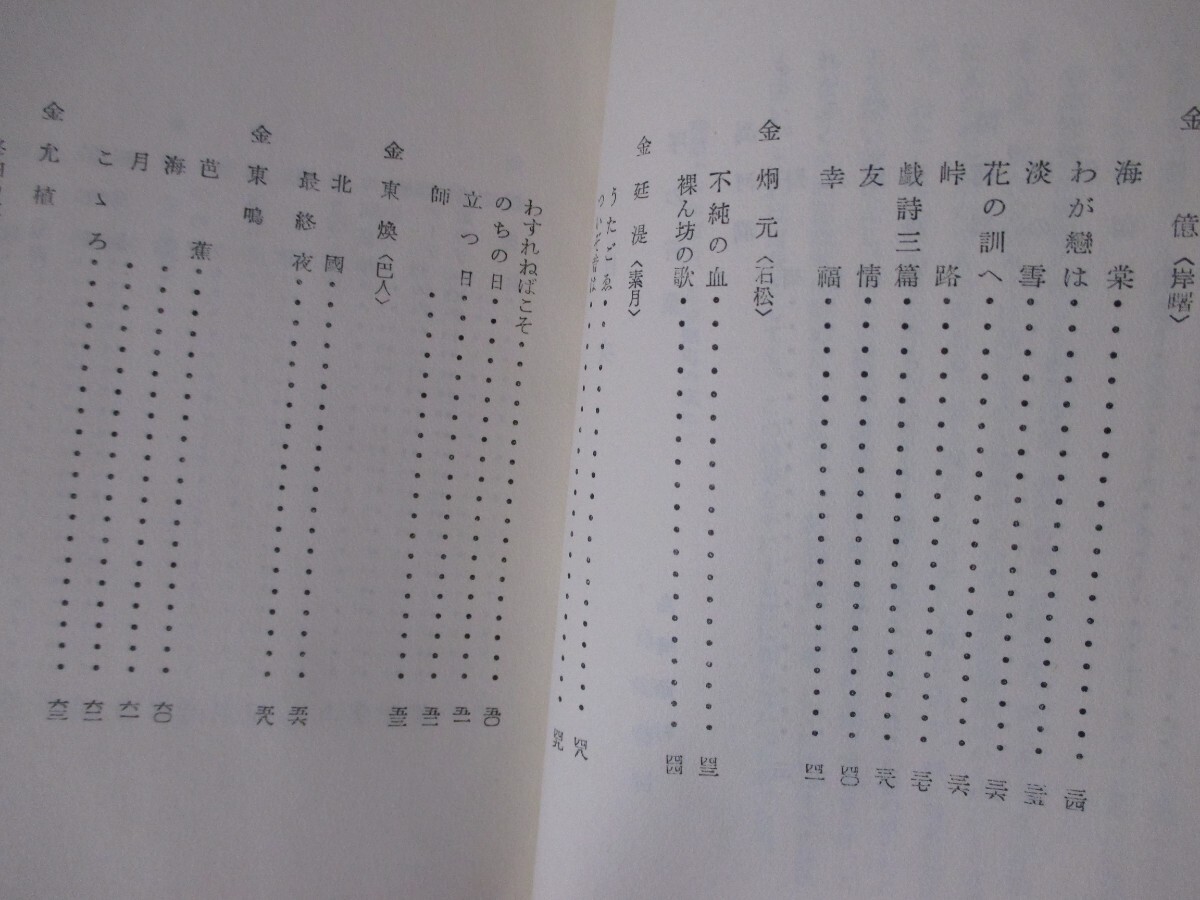 金 億〈岸曙〉
海棠・・・・・・三四
わが戀は・・・・・・三五
淡雪・・・・・・三六
花の訓へ・・・・・・三六
峠路・・・・・・三七
戯詩三篇・・・・・・三八
友情・・・・・・四〇
幸福・・・・・・四一
金炯元〈石松〉
不純の血・・・・・・四三
裸ん坊の歌・・・・・・四四
金廷湜〈素月〉
うたごゑ・・・・・・四八
ついぞ昔は・・・・・・四九
わすれねばこそ・・・・・・五〇
のちの日・・・・・・五一
立つ日・・・・・・五二
師・・・・・・五三
金東煥〈巴人〉
北國・・・・・・五六
最終夜・・・・・・五八
金東鳴
芭蕉・・・・・・六〇
海・・・・・・六一
月・・・・・・六二
こゝろ・・・・・・六三
金允植